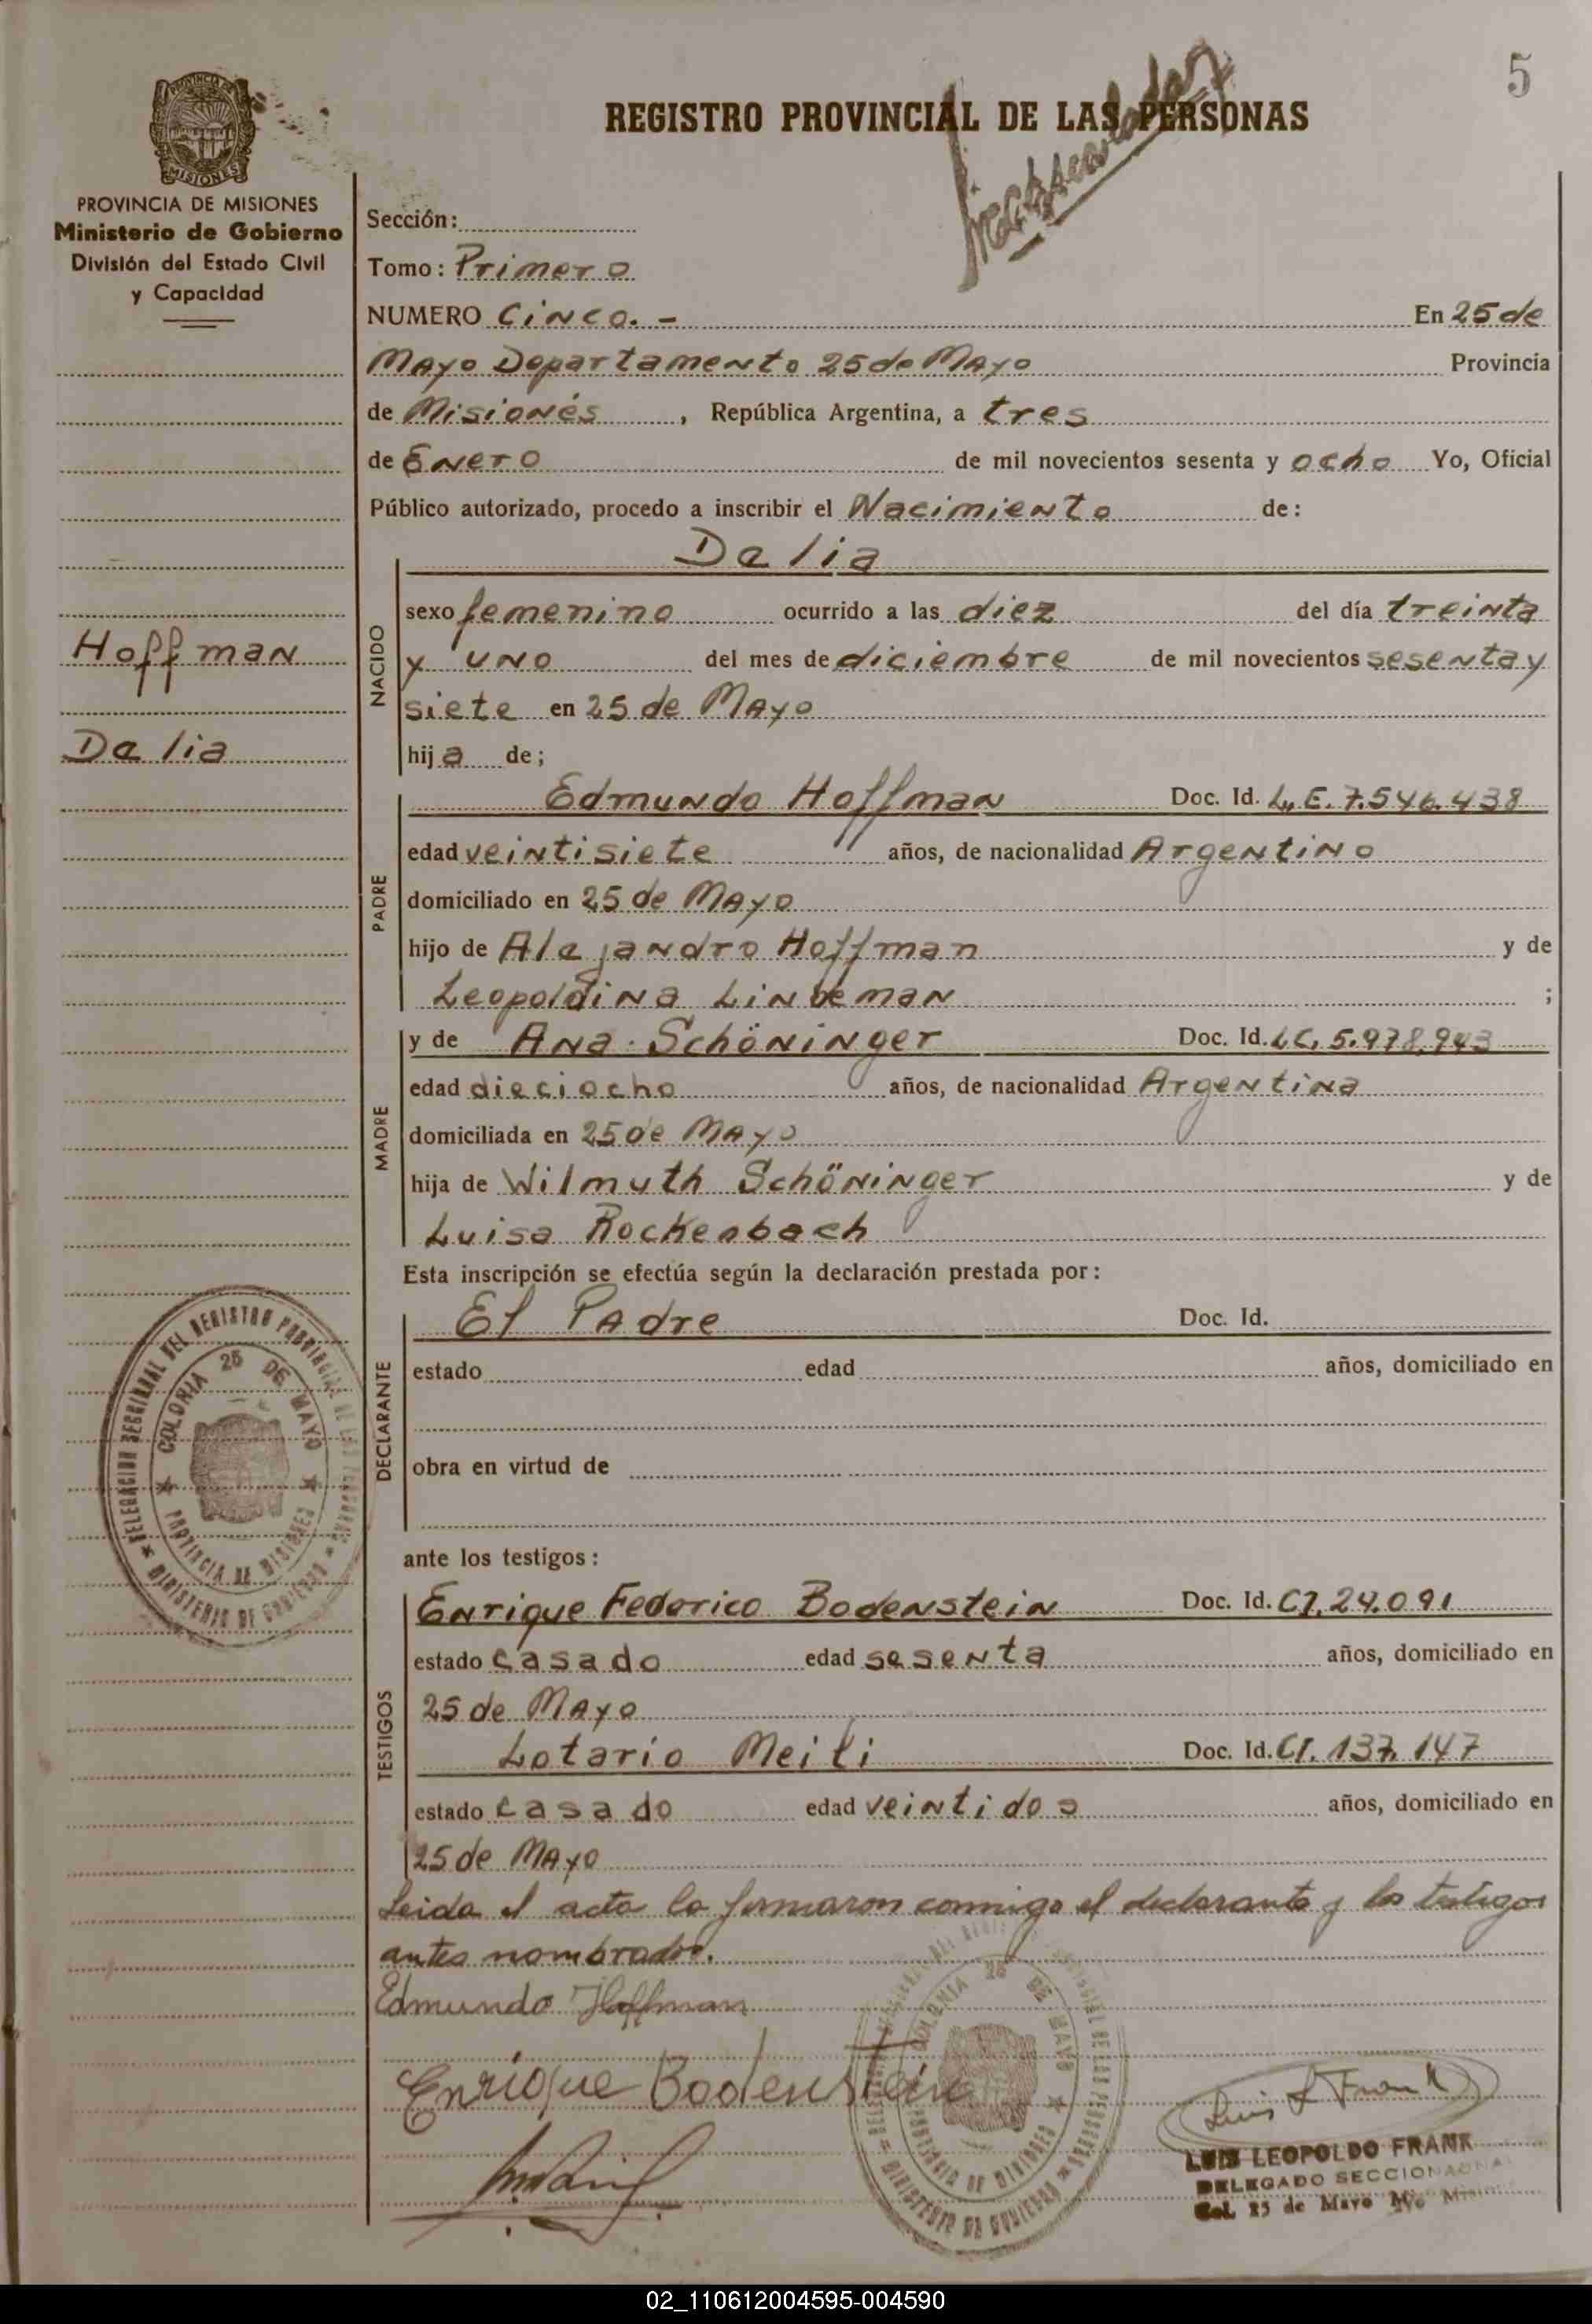 5
REGISTRO PROVINCIAL DE LAS PERSONAS
PROVINCIA DE MISIONES
Ministerio de Gobierno
División del Estado Civil
y Capacidad
Sección:
Tomo: Primero
NUMERO Cinco. - En 25 de
Mayo Departamento 25 de Mayo Provincia
de Misionés, República Argentina, a tres
de Enero de mil novecientos sesenta y ocho Yo, Oficial
Público autorizado, procedo a inscribir el Nacimiento de:
Dalia
NACIDO
sexo femenino ocurrido a las diez del día treinta
y uno del mes de diciembre de mil novecientos sesenta y
siete en 25 de Mayo
hija de;
Hoffman
Dalia
PADRE
Edmundo Hoffman Doc. Id. L.E. 7.546.438
edad veintisiete años, de nacionalidad Argentino
domiciliado en 25 de Mayo
hijo de Alejandro Hoffman y de
Leopoldina Lindeman ;
MADRE
y de Ana Schöninger Doc. Id. LC. 5.978.943
edad dieciocho años, de nacionalidad Argentina
domiciliada en 25 de Mayo
hija de Wilmuth Schöninger y de
Luisa Rockenbach
Esta inscripción se efectúa según la declaración prestada por:
DECLARANTE
El Padre Doc. Id.
estado edad años, domiciliado en
obra en virtud de
ante los testigos:
TESTIGOS
Enrique Federico Bodenstein Doc. Id. CI. 24.091
estado casado edad sesenta años, domiciliado en
25 de Mayo
Lotario Meili Doc. Id. CI. 137.147
estado casado edad veintidos años, domiciliado en
25 de Mayo
Leida el acta la firmaron conmigo el declarante y los testigos
antes nombrados.
Edmundo Hoffman
Enrique Bodenstein
Luis L Frank
LUIS LEOPOLDO FRANK
DELEGADO SECCIONAL
Col. 25 de Mayo
DELEGACION SECCIONAL DEL REGISTRO PROVINCIAL DE LAS PERSONAS
COLONIA 25 DE MAYO
PROVINCIA DE MISIONES
MINISTERIO DE GOBIERNO
COLONIA 25 DE MAYO
PROVINCIA DE MISIONES
MINISTERIO DE GOBIERNO
02_110612004595-004590